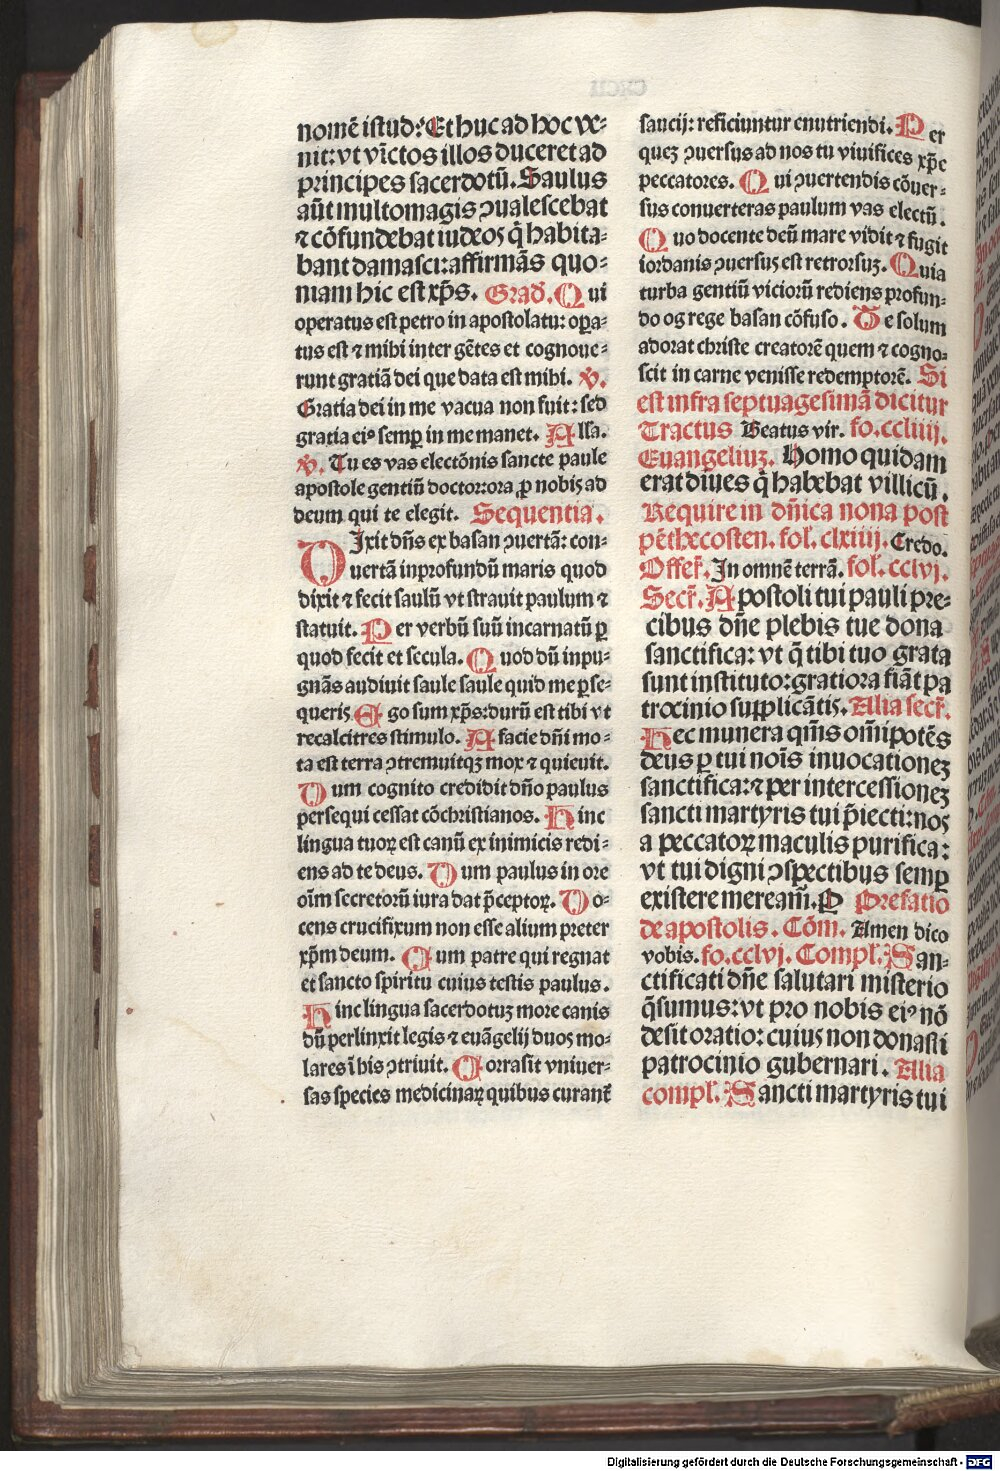 nomē istud: Et huc ad hoc ve-
nit: vt vīctos illos duceret ad
principes sacerdotū. Saulus
aūt multomagis ꝯualescebat
⁊ cōfundebat iudeos q̄ habita-
bant damasci: affirmās quo-
niam hic est xp̄s. Grad̄. Qui
operatus est petro in apostolatu: oꝑa-
tus est ⁊ mihi inter gētes et cognoue-
runt gratiā dei que data est mihi. ℣.
Gratia dei in me vacua non fuit: sed
gratia eiꝰ semꝑ in me manet. Alla.
℣. Tu es vas electōnis sancte paule
apostole gentiū doctor: ora ꝓ nobis ad
deum qui te elegit. Sequentia.
Dixit dn̄s ex basan ꝯuertā: con-
uertā inprofundū maris quod
dixit ⁊ fecit saulū vt strauit paulum ⁊
statuit. Per verbū suū incarnatū ꝑ
quod fecit et secula. Quod dū inpu-
gnās audiuit saule saule quid me ꝑse-
queris Ego sum xp̄s: durū est tibi vt
recalcitres stimulo. A facie dn̄i mo-
ta est terra ꝯtremuitqꝫ mox ⁊ quieuit.
Dum cognito credidit dn̄o paulus
persequi cessat cōchristianos. Hinc
lingua tuoꝝ est canū ex inimicis redi-
ens ad te deus. Dum paulus in ore
oīm secretorū iura dat p̄ceptoꝝ. Do-
cens crucifixum non esse alium preter
xp̄m deum. Cum patre qui regnat
et sancto spiritu cuius testis paulus.
Hinc lingua sacerdotuꝫ more canis
dū perlinxit legis ⁊ euāgelij duos mo-
lares ī his ꝯtriuit. Corrasit vniuer-
sas species medicinaꝝ quibus curant̄
saucij: reficiuntur enutriendi. Per
queꝫ ꝯuersus ad nos tu viuifices xp̄e
peccatores. Qui ꝯuertendis cōuer-
sus conuerteras paulum vas electū.
Quo docente deū mare vidit ⁊ fugit
iordanis ꝯuersus est retrorsuꝫ. Quia
turba gentiū viciorū rediens profun-
do og rege basan cōfuso. Te solum
adorat christe creatorē quem ⁊ cogno-
scit in carne venisse redemptorē. Si
est infra septuagesimā dicitur
Tractus Beatus vir. fo. ccliiij.
Euangeliuꝫ. Homo quidam
erat diues q̄ habebat villicū.
Require in dn̄ica nona post
pēthecosten. fol. clxiiij. Credo.
Offer̄. In omnē terrā. fol. cclvj.
Secr̄. Apostoli tui pauli pre-
cibus dn̄e plebis tue dona
sanctifica: vt q̄ tibi tuo grata
sunt instituto: gratiora fiāt pa
trocinio supplicātis. Alia secr̄.
Hec munera qm̄s om̄ipotēs
deus ꝑ tui nōis inuocationeꝫ
sanctifica: ⁊ per intercessioneꝫ
sancti martyris tui p̄iecti: nos
a peccatoꝝ maculis purifica:
vt tui digni ꝯspectibus semꝑ
existere meream̄. P Prefatio
de apostolis. Cōm. Amen dico
vobis. fo. cclvj. Compl. San-
ctificati dn̄e salutari misterio
q̄sumus: vt pro nobis eiꝰ nō
desit oratio: cuius non donasti
patrocinio gubernari. Alia
compl. Sancti martyris tui
Digitalisierung gefördert durch die Deutsche Forschungsgemeinschaft - DFG